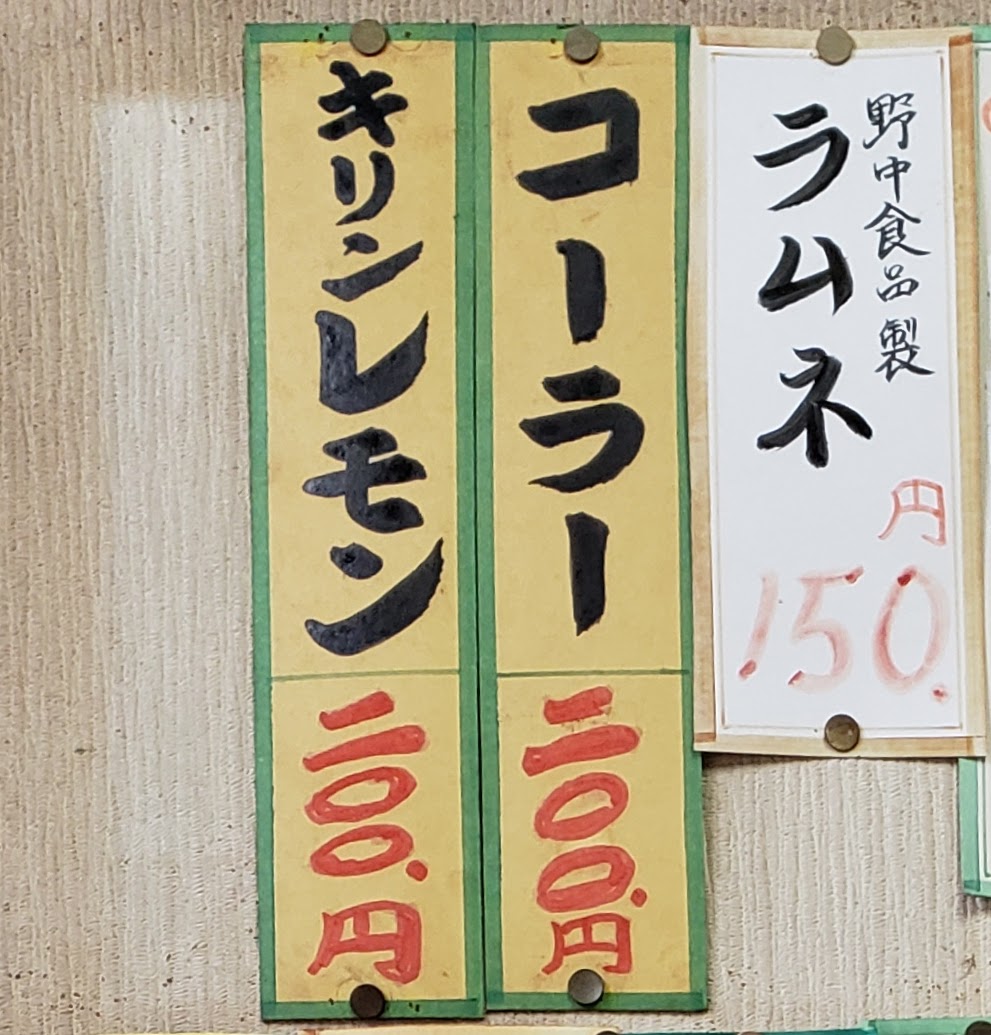 野中食品製
ラムネ
円
150.
コーラー
二〇〇.円
キリンレモン
二〇〇.円